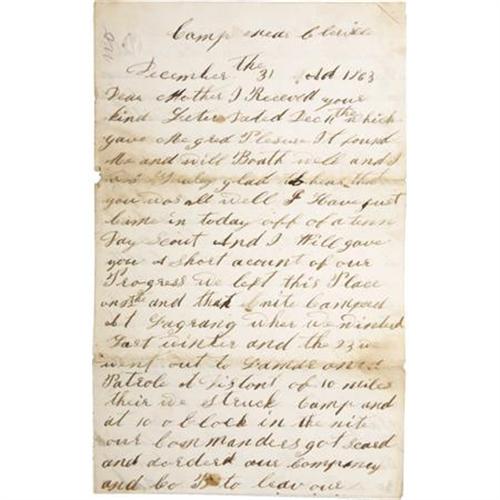 Camp near
December the 31 1863
Dear Mother I Receved your
kind Letter Dated Dec the which
gave Me gred Plesure It found
Me and will Boath well and I
was truley glad to hear that
you was all well I Have just
Came in today off of a tenn
Day Scout And I Will gave
you A Short acount of our
Progress we left this Place
on and that nite Campad
At Lagrang wher we winterd
Last winter and the 23
went out to
Patrole A Distons of 10 miles
their we struck Camp and
at 10 o Clock in the nite
our Commanders got scard
and dorderd our Company
and Co to leav our